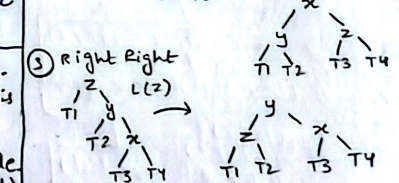 x
y z
T1 T2 T3 T4
③ Right Right
z L(z)
T1 y → y
T2 x z x
T3 T4 T1 T2 T3 T4
is
de